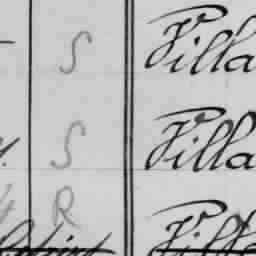 S Villa
S Villa
R Villa